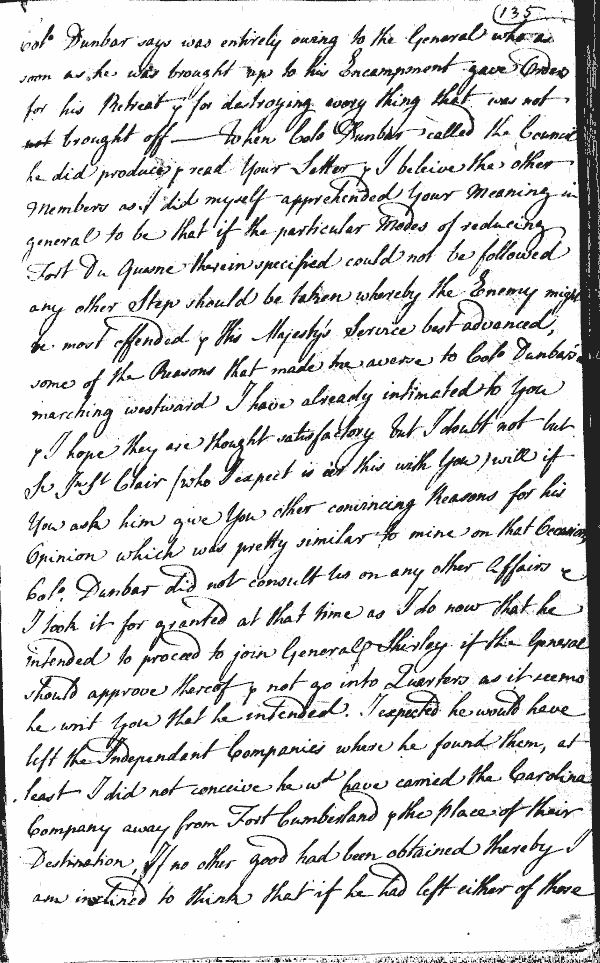 135
Colo. Dunbar says was entirely owing to the General who as
soon as he was brought up to his Encampment gave Orders
for his Retreat & for destroying every thing that was not
not brought off — When Colo Dunbar called the Council
he did produce & read Your Letter & I beleive the other
Members as I did myself apprehended Your Meaning in
general to be that if the particular Modes of reducing
Fort Du Quesne therein specified could not be followed
any other Step should be taken whereby the Enemy might
be most offended & His Majesty's Service best advanced,
some of the Reasons that made me averse to Colo Dunbar's
marching westward I have already intimated to You
& I hope they are thought satisfactory but I doubt not but
Sr Jn St Clair (who I expect is ere this with You) will if
You ask him give You other convincing Reasons for his
Opinion which was pretty similar to mine on that Occasion
Colo. Dunbar did not consult us on any other Affairs &
I took it for granted at that time as I do now that he
intended to proceed to join General Shirley if the General
should approve thereof & not go into Quarters as it seems
he writ You that he intended. I expected he would have
left the Independent Companies where he found them, at
least I did not conceive he wd have carried the Carolina
Company away from Fort Cumberland & the Place of their
Destination, If no other good had been obtained thereby I
am inclined to think that if he had left either of those